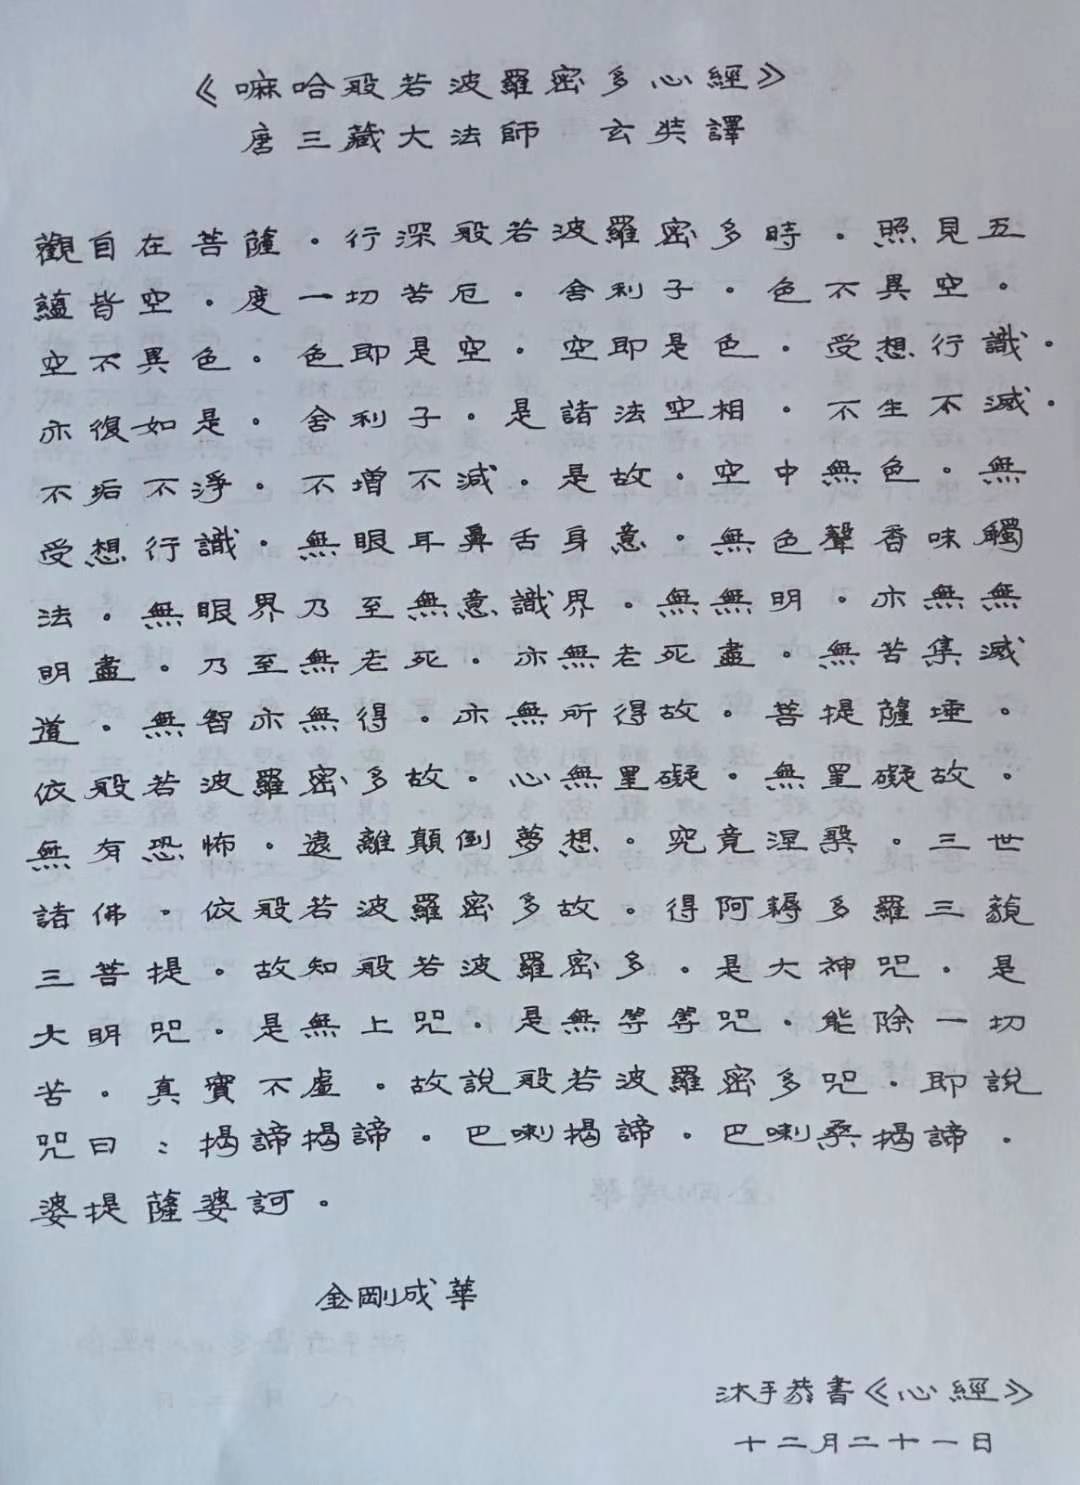 《嘛哈般若波羅密多心經》
唐三藏大法師 玄奘譯
觀自在菩薩。行深般若波羅密多時。照見五
蘊皆空。度一切苦厄。舍利子。色不異空。
空不異色。色即是空。空即是色。受想行識。
亦復如是。舍利子。是諸法空相。不生不滅。
不垢不淨。不增不減。是故。空中無色。無
受想行識。無眼耳鼻舌身意。無色聲香味觸
法。無眼界乃至無意識界。無無明。亦無無
明盡。乃至無老死。亦無老死盡。無苦集滅
道。無智亦無得。亦無所得故。菩提薩埵。
依般若波羅密多故。心無罣礙。無罣礙故。
無有恐怖。遠離顛倒夢想。究竟涅槃。三世
諸佛。依般若波羅密多故。得阿耨多羅三藐
三菩提。故知般若波羅密多。是大神咒。是
大明咒。是無上咒。是無等等咒。能除一切
苦。真實不虛。故說般若波羅密多咒。即說
咒曰：揭諦揭諦。巴喇揭諦。巴喇桑揭諦。
婆提薩婆訶。
金剛成華
沐手恭書《心經》
十二月二十一日